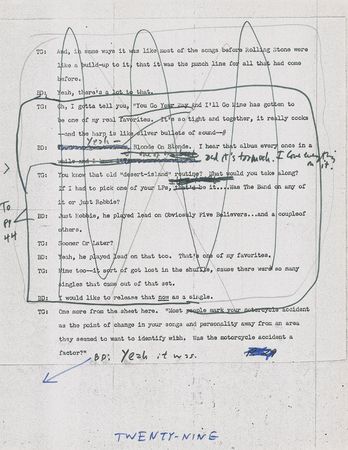 TG: And, in some ways it was like most of the songs before Rolling Stone were
like a build-up to it, that it was the punch line for all that had come
before.
BD: Yeah, there's a lot to that.
TG: Oh, I gotta tell you, "You Go Your Way And I'll Go Mine has gotten to
be one of my real favorites. It's so tight and together, it really cooks
--and the harp is like silver bullets of sound--
Yeah —
BD: Blonde On Blonde. I hear that album every once in a
while and I
TG: You know that old "desert-island" routine? What would you take along?
If I had to pick one of your LPs, that's be it....Was The Band on any of
it or just Robbie?
To
pg
44
BD: Just Robbie, he played lead on Obviously Five Believers...and a couple of
others.
TG: Sooner Or Later?
BD: Yeah, he played lead on that too. That's one of my favorites.
TG: Mine too--it sort of got lost in the shuffle, cause there were so many
singles that came out of that set.
BD: I would like to release that now as a single.
TG: One more from the sheet here. "Most people mark your motorcycle accident
as the point of change in your songs and personality away from an area
they seemed to want to identify with. Was the motorcycle accident a
factor?"
BD: Yeah it was.
TWENTY-NINE